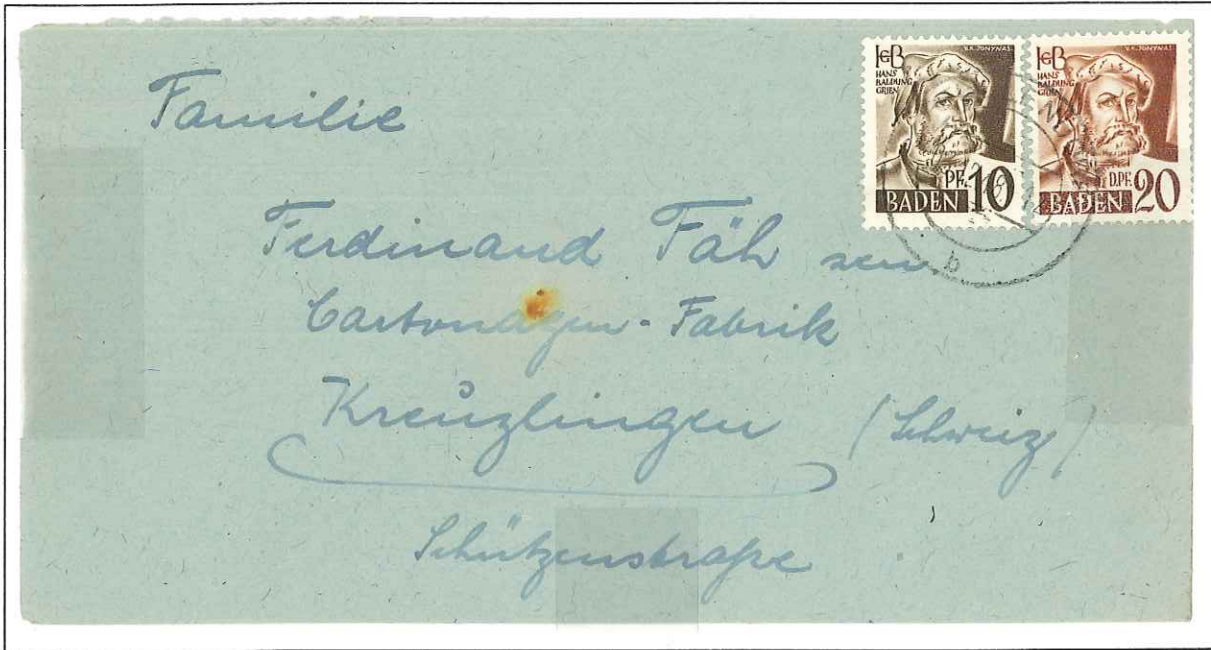 Familie
Ferdinand Fäh sen
Cartonagen-Fabrik
Kreuzlingen (Schweiz)
Schützenstraße
HGB
HANS
BALDUNG
GRIEN
V.K. JONYNAS
PF. 10
BADEN
HGB
HANS
BALDUNG
GRIEN
V.K. JONYNAS
D.PF. 20
BADEN
b